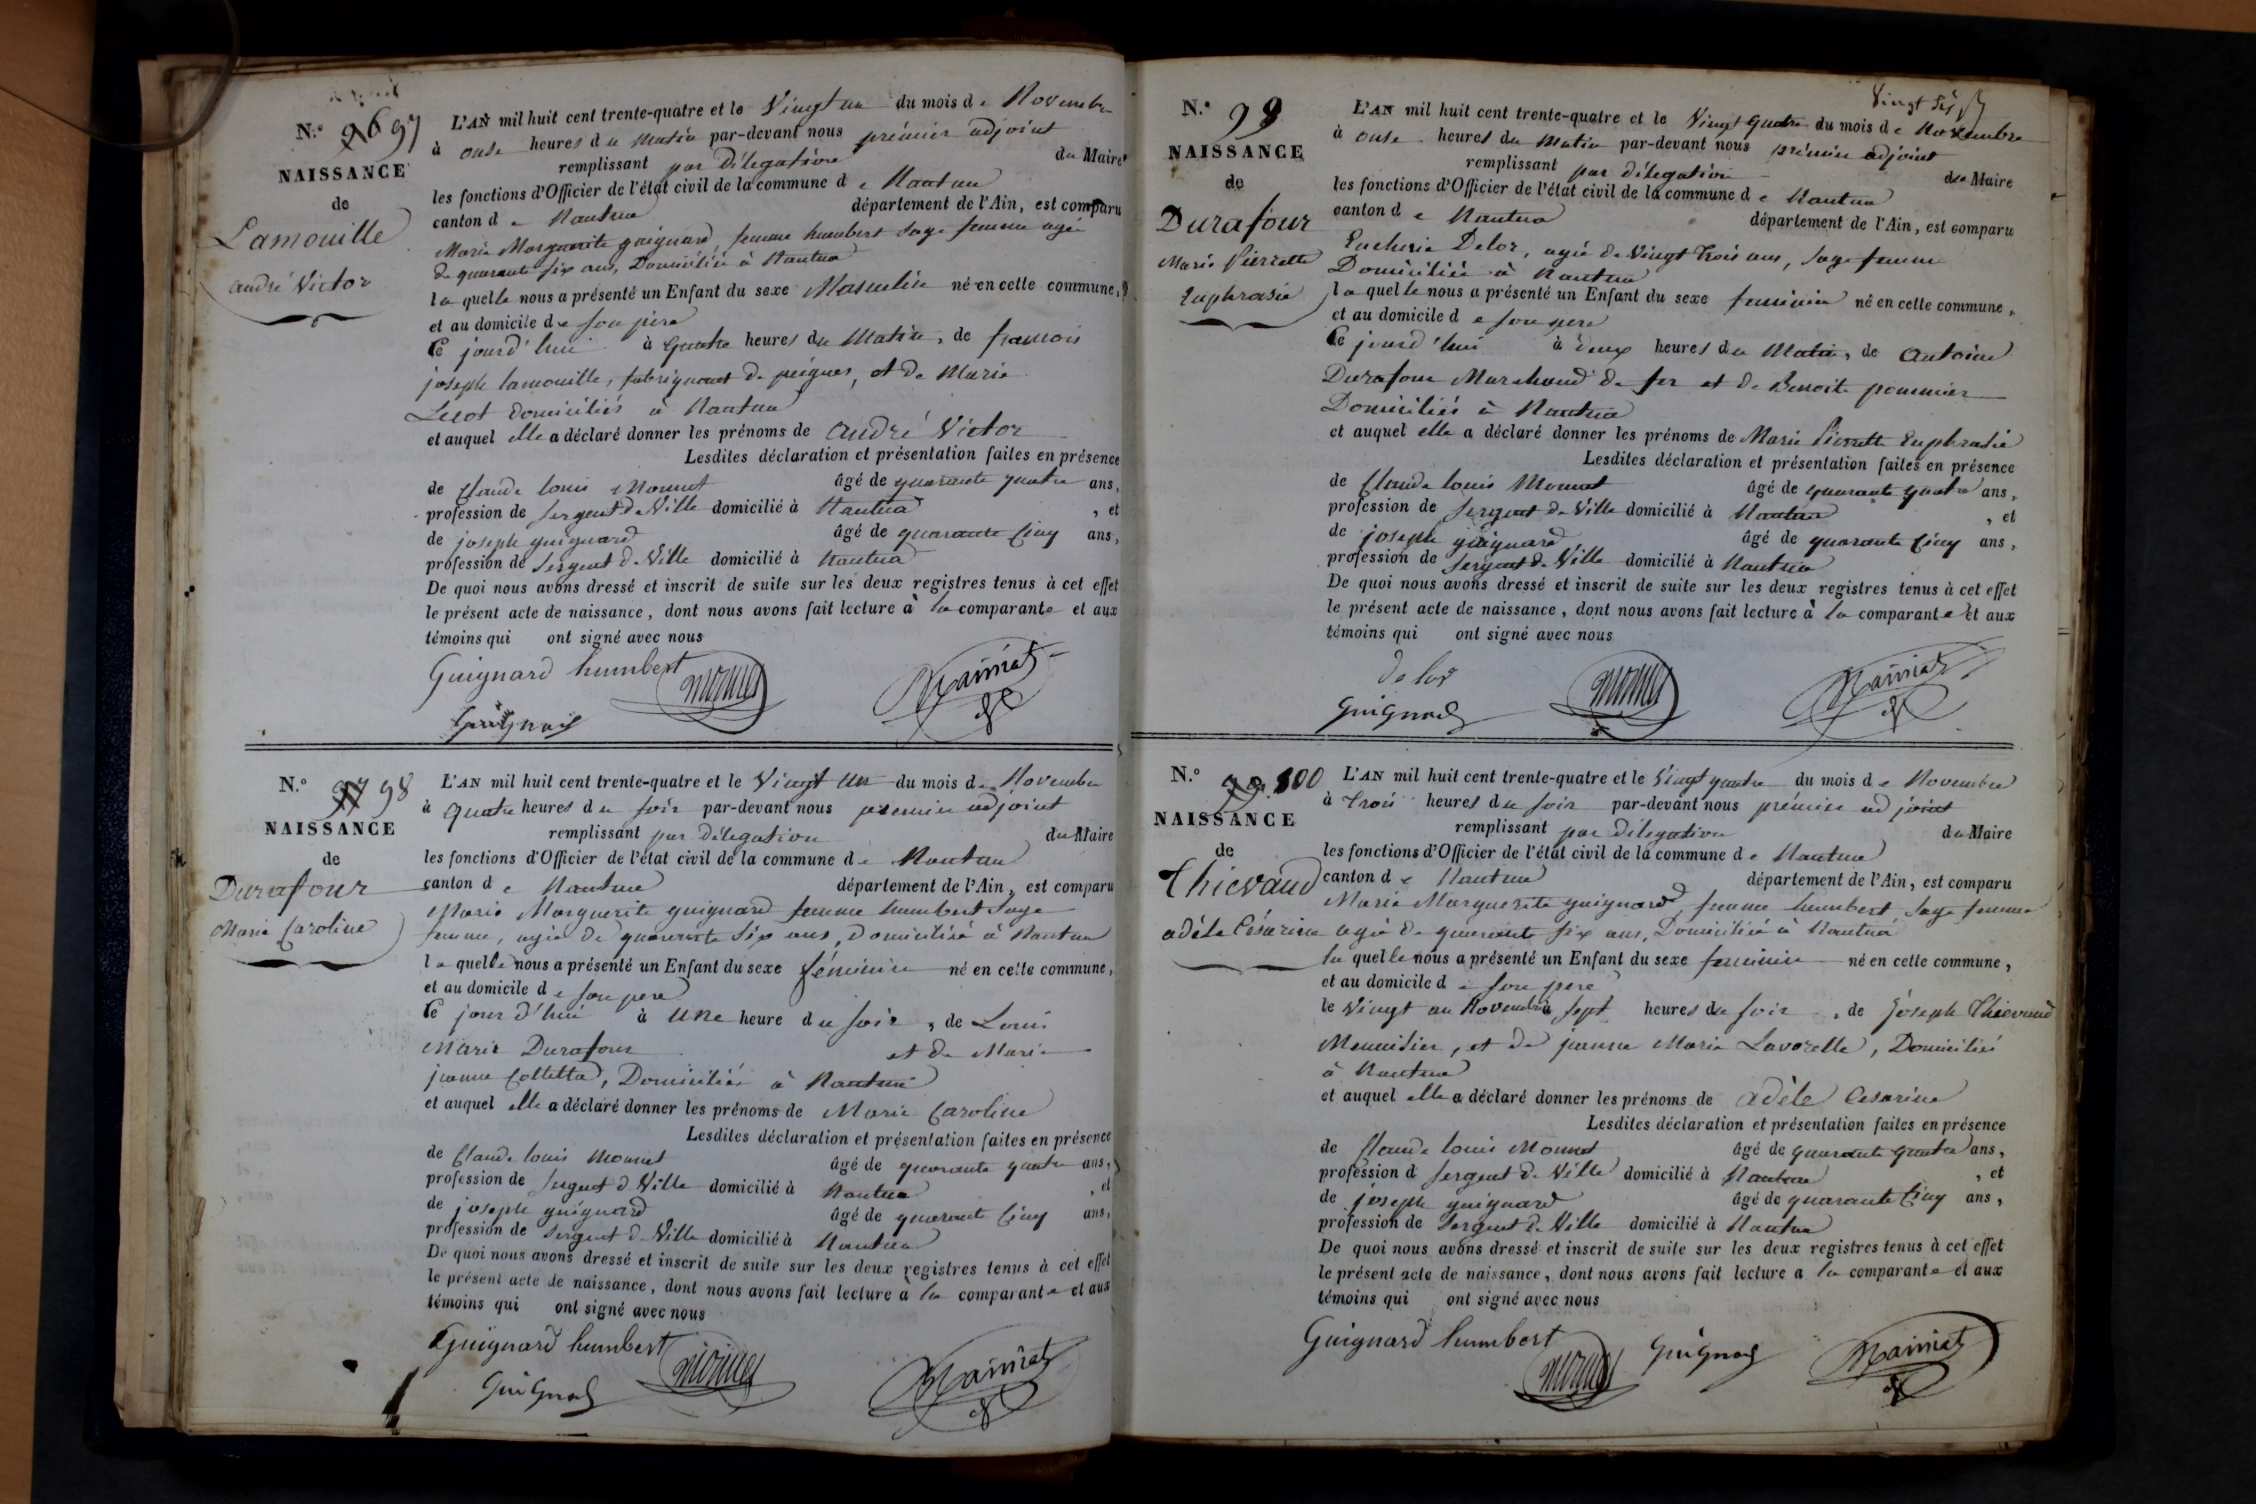 N.º 96 97
NAISSANCE
de
Lamouille
andré Victor
L'AN mil huit cent trente-quatre et le Vingt un du mois de Novembre
à onse heures du matin par-devant nous prémier adjoint
remplissant par délégation du Maire
les fonctions d'Officier de l'état civil de la commune de Nantua
canton de Nantua département de l'Ain, est comparu
Marie Marguerite guignard, femme humbert sage femme agée
de quarante six ans, Domiciliée à Nantua
laquelle nous a présenté un Enfant du sexe Masculin né en cette commune,
et au domicile de son père
Ce jourd'hui à quatre heures du Matin, de françois
joseph lamouille, fabriquant de peignes, et de Marie
domiciliés à Nantua
et auquel elle a déclaré donner les prénoms de andré Victor
Lesdites déclaration et présentation faites en présence
de Claude louis Monnet âgé de quarante quatre ans,
profession de Sergent de Ville domicilié à Nantua, et
de joseph guignard âgé de quarante Cinq ans,
profession de Sergent de Ville domicilié à Nantua
De quoi nous avons dressé et inscrit de suite sur les deux registres tenus à cet effet
le présent acte de naissance, dont nous avons fait lecture à la comparante et aux
témoins qui ont signé avec nous
Guignard humbert
Guignard
N.º 97 98
NAISSANCE
de
Durafour
Marie Caroline
L'AN mil huit cent trente-quatre et le Vingt un du mois de Novembre
à quatre heures du soir par-devant nous premier adjoint
remplissant par délégation du Maire
les fonctions d'Officier de l'état civil de la commune de Nantua
canton de Nantua département de l'Ain, est comparu
Marie Marguerite guignard femme humbert Sage
femme, agée de quarante Six ans, Domiciliée à Nantua
laquelle nous a présenté un Enfant du sexe féminin né en cette commune,
et au domicile de son pere
Ce jour d'hui à une heure du soir, de Louis
Marie Durafour et de Marie
jeanne Colletta, Domiciliés à Nantua
et auquel elle a déclaré donner les prénoms de Marie Caroline
Lesdites déclaration et présentation faites en présence
de Claude louis Monnet âgé de quarante quatre ans,
profession de Sergent de Ville domicilié à Nantua, et
de joseph guignard âgé de quarante Cinq ans,
profession de Sergent de Ville domicilié à Nantua
De quoi nous avons dressé et inscrit de suite sur les deux registres tenus à cet effet
le présent acte de naissance, dont nous avons fait lecture à la comparante et aux
témoins qui ont signé avec nous
Guignard humbert
Guignard
Vingt Six
N.º 99
NAISSANCE
de
Durafour
Marie Pierrette
Euphrasie
L'AN mil huit cent trente-quatre et le Vingt quatre du mois de Novembre
à onse heures du Matin par-devant nous prémier adjoint
remplissant par délégation du Maire
les fonctions d'Officier de l'état civil de la commune de Nantua
canton de Nantua département de l'Ain, est comparu
Delor, agée de Vingt trois ans, Sage femme
Domiciliée à Nantua
laquelle nous a présenté un Enfant du sexe feminin né en cette commune,
et au domicile de son pere
Ce jourd'hui à deux heures du Matin, de Antoine
Durafour Marchand de fer et de Benoite pommier
Domiciliés à Nantua
et auquel elle a déclaré donner les prénoms de Marie Pierrette Euphrasie
Lesdites déclaration et présentation faites en présence
de Claude louis Monnet âgé de quarante quatre ans,
profession de Sergent de Ville domicilié à Nantua, et
de joseph guignard âgé de quarante Cinq ans,
profession de Sergent de Ville domicilié à Nantua
De quoi nous avons dressé et inscrit de suite sur les deux registres tenus à cet effet
le présent acte de naissance, dont nous avons fait lecture à la comparante et aux
témoins qui ont signé avec nous
delor
Guignard
N.º 100
NAISSANCE
de
Thievaud
adèle Césarine
L'AN mil huit cent trente-quatre et le Vingt quatre du mois de Novembre
à trois heures du soir par-devant nous prémier adjoint
remplissant par délégation du Maire
les fonctions d'Officier de l'état civil de la commune de Nantua
canton de Nantua département de l'Ain, est comparu
Marie Marguerite guignard femme humbert, Sage femme
agée de quarante Six ans, Domiciliée à Nantua
laquelle nous a présenté un Enfant du sexe feminin né en cette commune,
et au domicile de son pere
le Vingt un Novembre à sept heures du soir, de joseph Thievaud
Menuisier, et de jeanne Marie Lavorelle, Domiciliés
à Nantua
et auquel elle a déclaré donner les prénoms de adèle Cesarine
Lesdites déclaration et présentation faites en présence
de Claude louis Monnet âgé de quarante quatre ans,
profession d Sergent de Ville domicilié à Nantua, et
de joseph guignard âgé de quarante Cinq ans,
profession de Sergent de Ville domicilié à Nantua
De quoi nous avons dressé et inscrit de suite sur les deux registres tenus à cet effet
le présent acte de naissance, dont nous avons fait lecture a la comparante et aux
témoins qui ont signé avec nous
Guignard humbert
Guignard